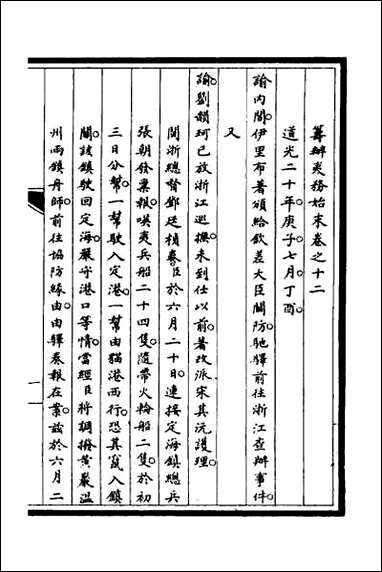 籌辦夷務始末卷之十二
道光二十年庚子七月丁酉
諭內閣伊里布著頒給欽差大臣關防馳驛前往浙江查辦事件
又
諭劉韻珂已放浙江巡撫未到任以前著改派宋其沅護理
閩浙總督鄧廷楨奏臣於六月二十日連接定海鎮總兵
張朝發稟報嘆夷兵船二十四隻隨帶火輪船二隻於初
三日分幫一幫駛入定港一幫由貓港西行恐其竄入鎮
關該鎮駛回定海嚴守港口等情當經臣將調撥黃巖溫
州兩鎮舟師前往協防緣由由驛奏報在案茲於六月二